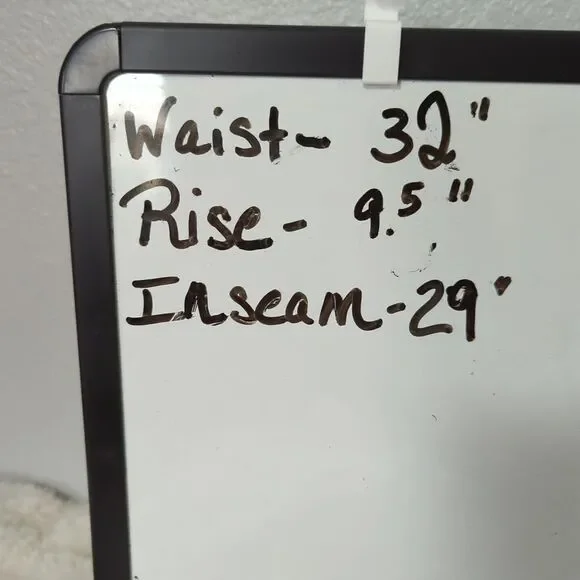 Waist- 32"
Rise- 9.5"
Inseam-29"